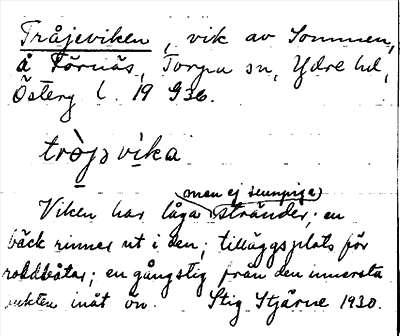 Tråjeviken, vik av Sommen,
å Förnäs, Torpa sn, Ydre hd,
Österg l. 19 G36.
trò̱jə vi̱ka
men ej sumpiga
Viken har låga stränder; en
bäck rinner ut i den; tilläggsplats för
roddbåtar; en gångstig från den innersta
inåt ön. Stig Stjärne 1930.